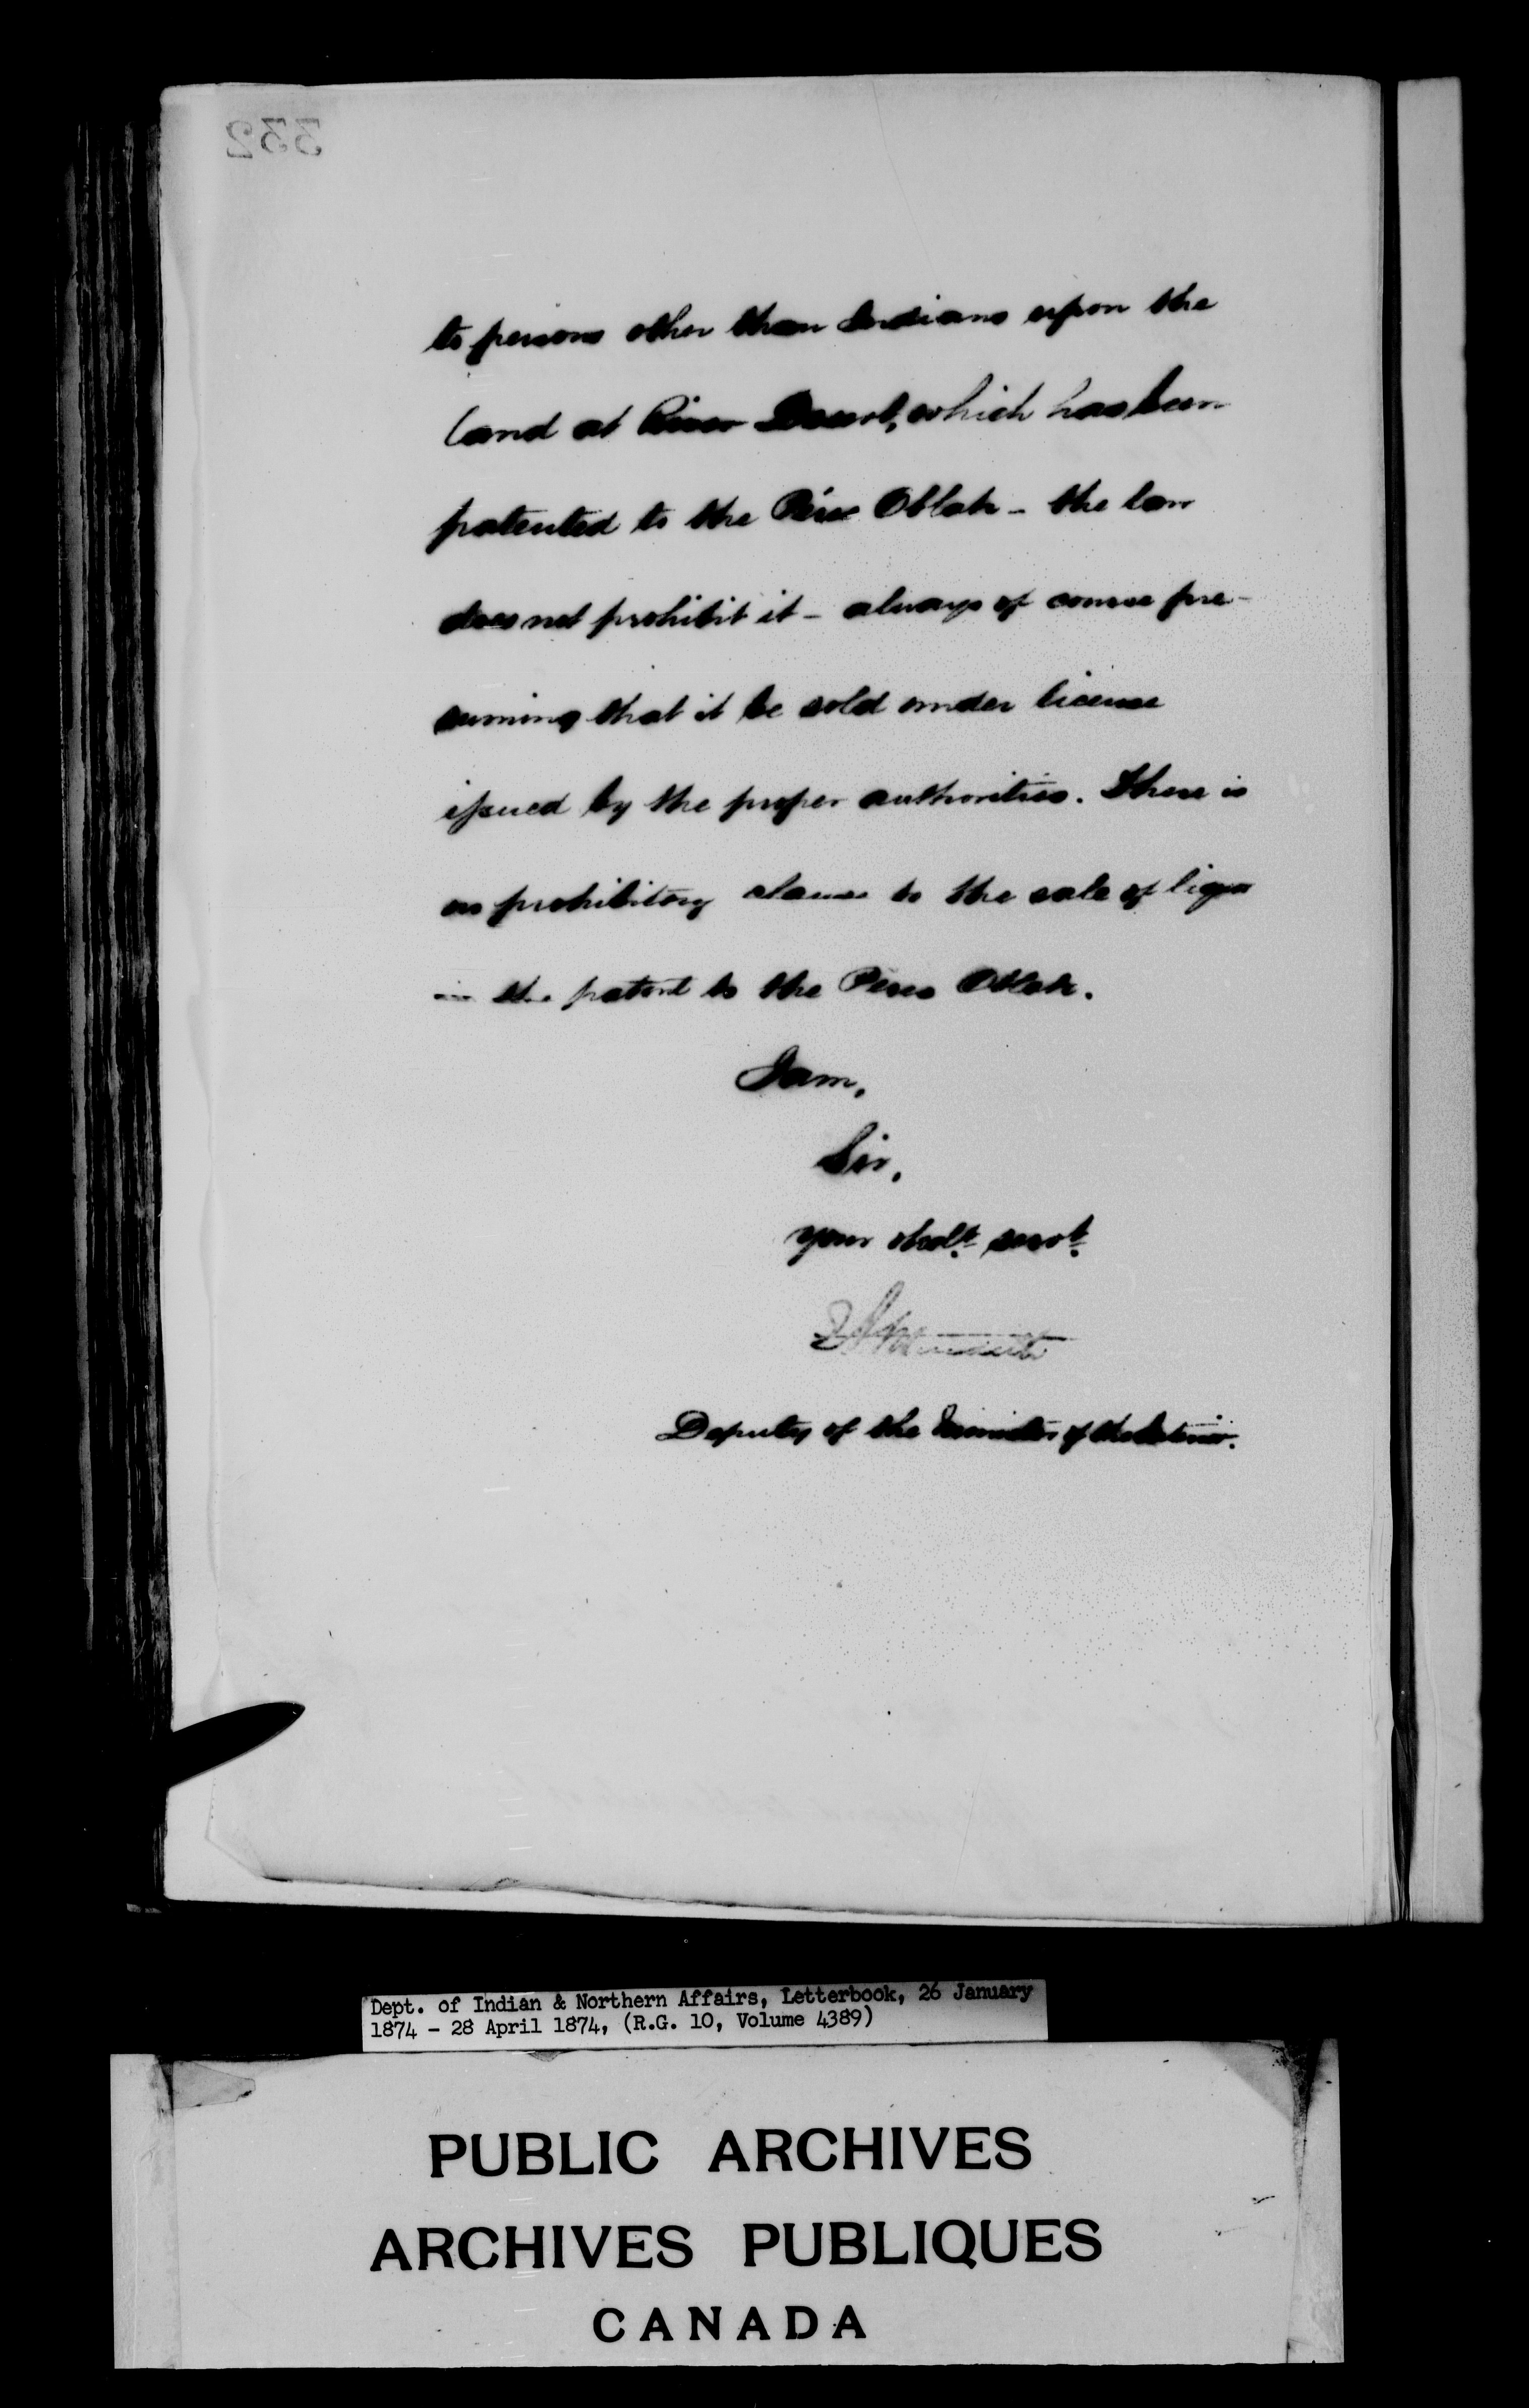 332
to persons other than Indians upon the
land at River Desert, which has been
patented to the Péres Oblats - the law
does not prohibit it - always of course pre-
suming that it be sold under license
issued by the proper authorities. There is
no prohibitory clause to the sale of liquor
in the patent to the Peres Oblats.
I am,
Sir,
your obedt. servt.
Deputy of the Minister of the Interior.
Dept. of Indian & Northern Affairs, Letterbook, 26 January
1874 - 28 April 1874, (R.G. 10, Volume 4389)
PUBLIC ARCHIVES
ARCHIVES PUBLIQUES
CANADA